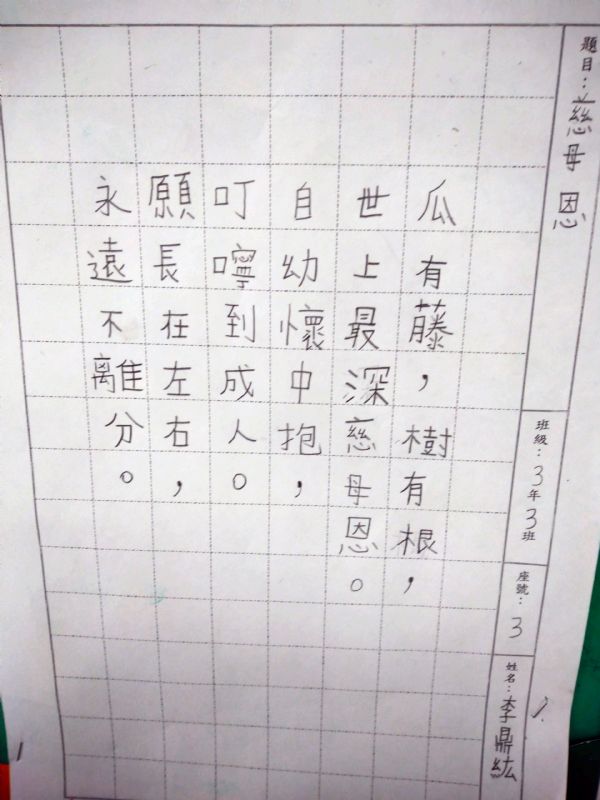 題目：慈母恩
班級：3年3班
座號：3
姓名：李鼎紘
瓜有藤，樹有根，
世上最深慈母恩。
自幼懷中抱，
叮嚀到成人。
願長在左右，
永遠不離分。